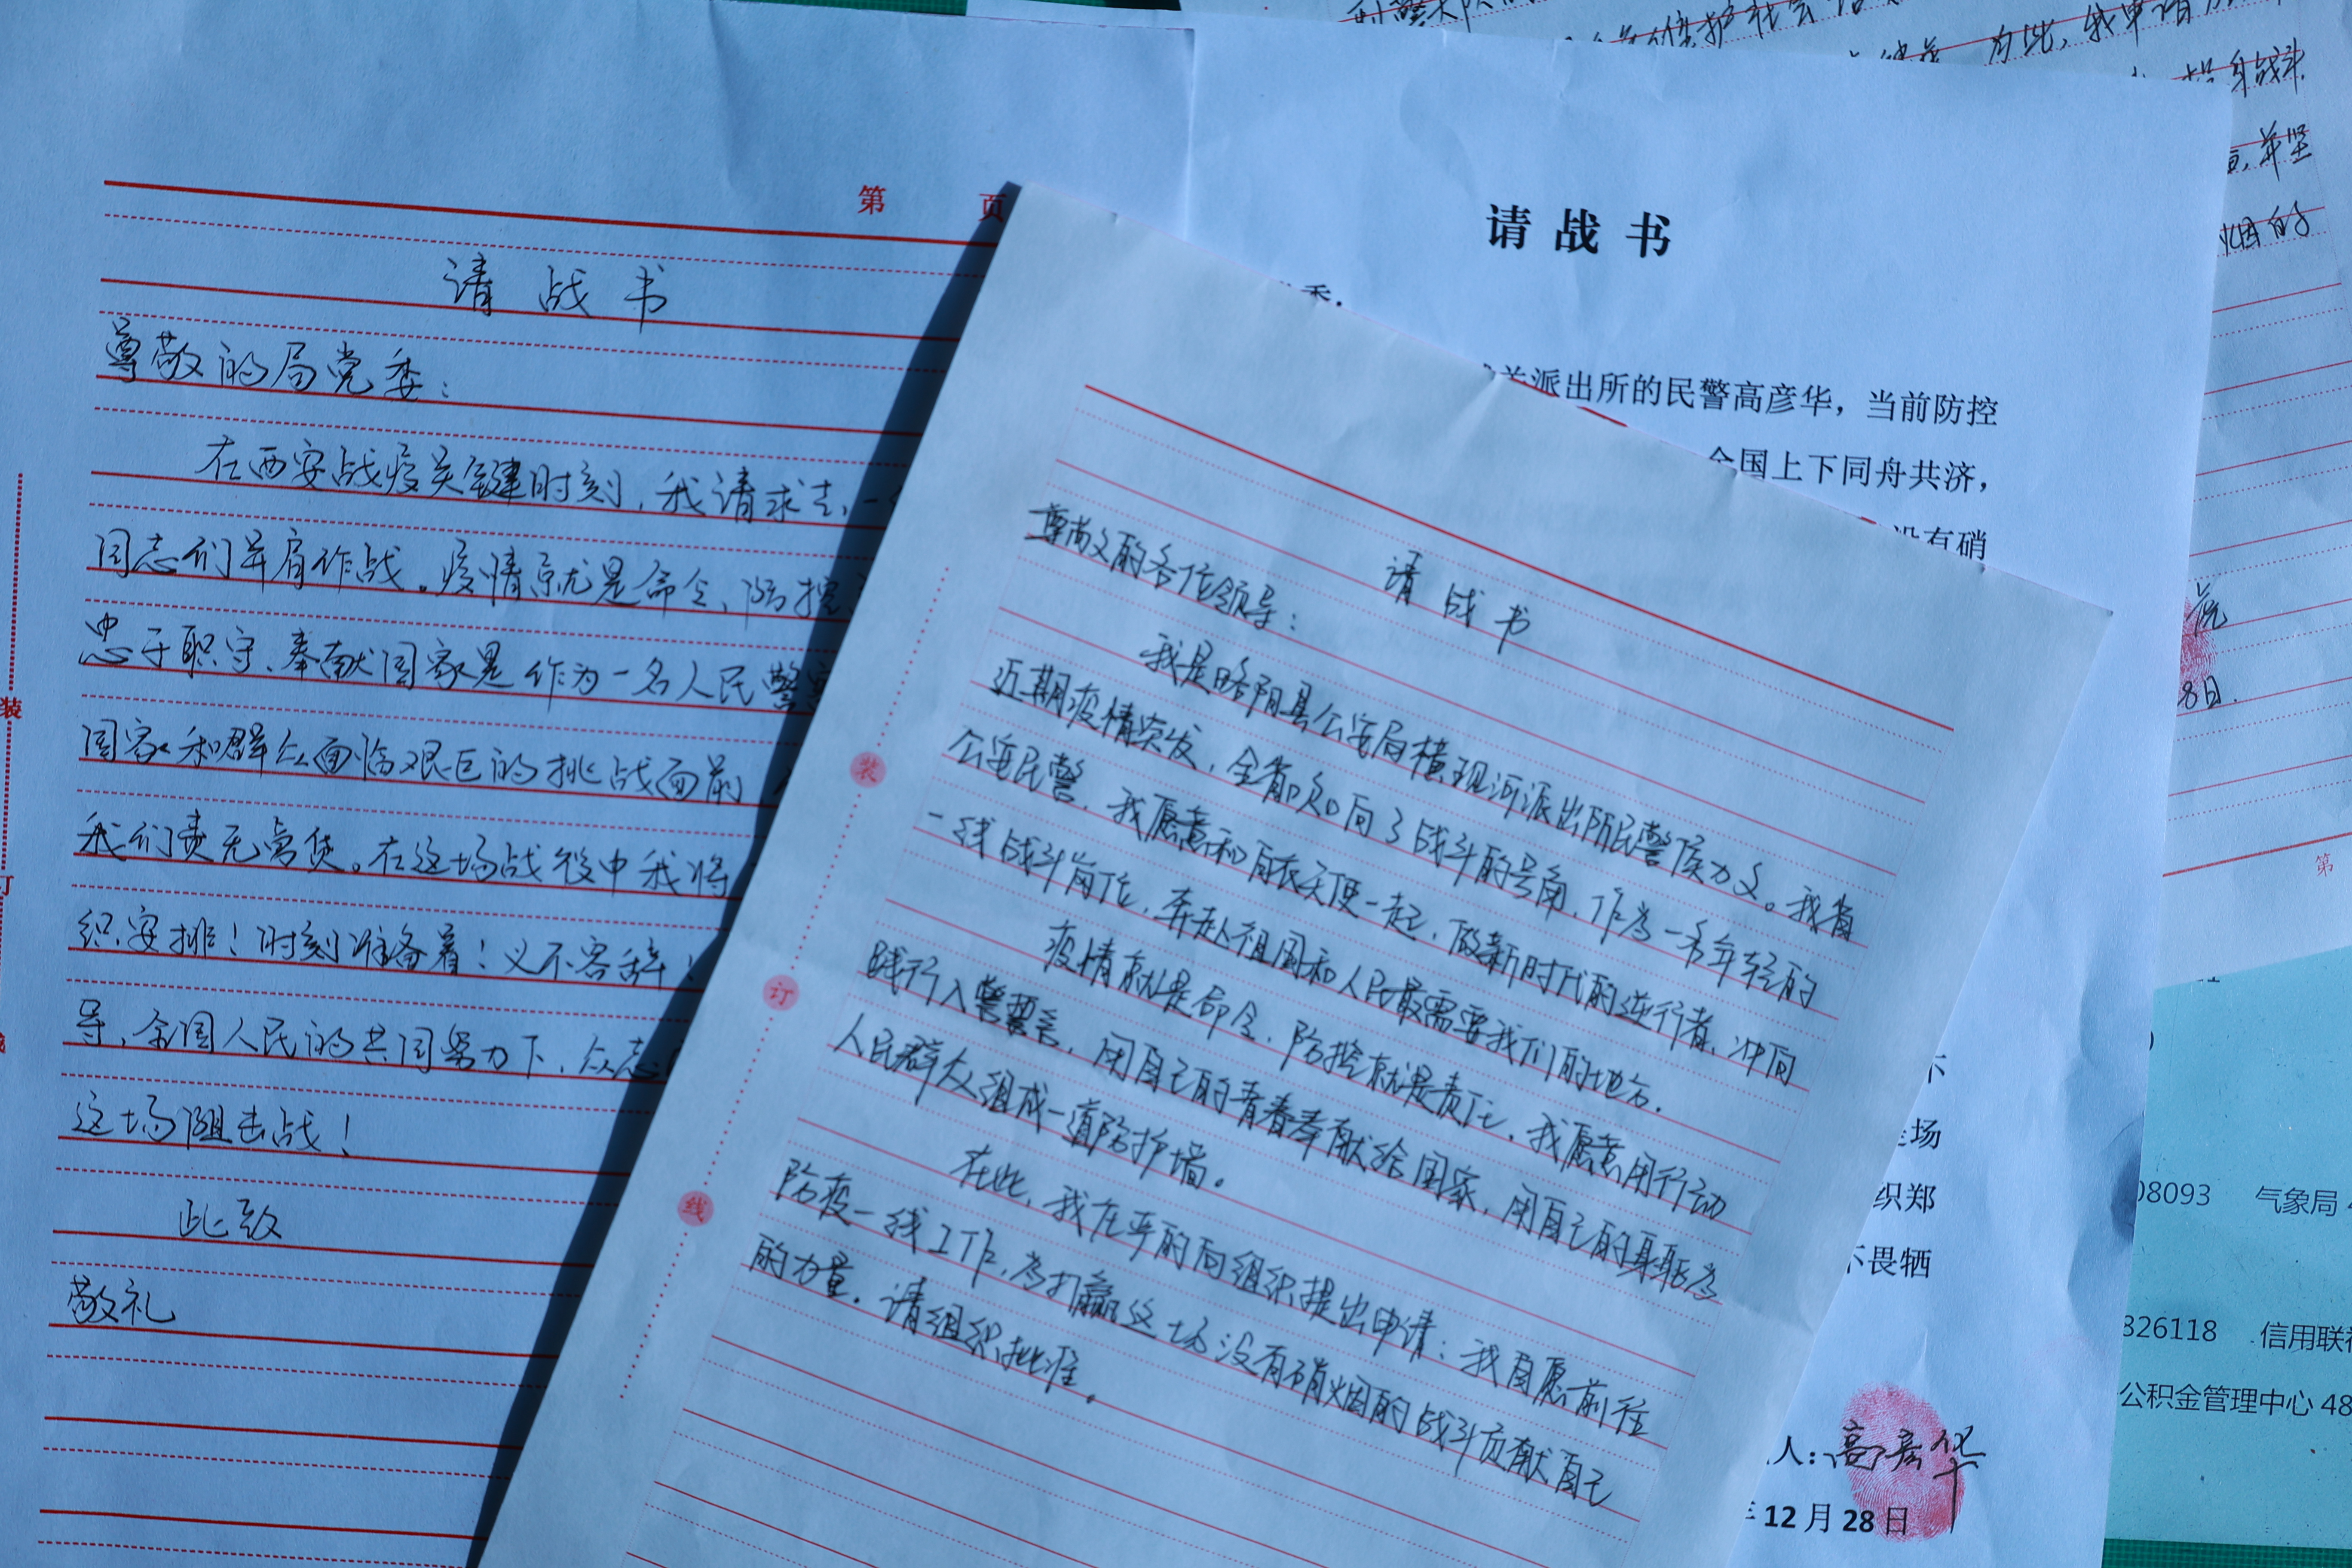 第 页
请战书
尊敬的局党委：
在西安战疫关键时刻，我请求去一
同志们并肩作战。疫情就是命令、防控
忠于职守、奉献国家是作为一名人民警察
国家和群众面临艰巨的挑战面前
我们责无旁贷。在这场战役中我将
织安排！时刻准备着！义不容辞！
导，全国人民的共同努力下，众志
这场阻击战！
此致
敬礼
装
订
请战书
尊敬的各位领导：
我是略阳县公安局横现河派出所民警侯力文。我省
近期疫情突发，全省吹向了战斗的号角，作为一名年轻的
公安民警，我愿意和白衣天使一起，做新时代的逆行者，冲向
一线战斗岗位，奔赴祖国和人民最需要我们的地方.
疫情就是命令，防控就是责任，我愿意用行动
践行入警誓言，用自己的青春奉献给国家，用自己的身躯为
人民群众组成一道防护墙。
在此，我庄严的向组织提出申请：我自愿前往
防疫一线工作，为打赢这场没有硝烟的战斗贡献自己
的力量。请组织批准。
装
订
线
请战书
委：
派出所的民警高彦华，当前防控
全国上下同舟共济，
没有硝
场
织郑
不畏牺
人：高彦华
12月28日
保护社会
为此，我申请
身战斗
并坚
烟的
8日.
第
08093 气象局
826118 信用联
公积金管理中心 48